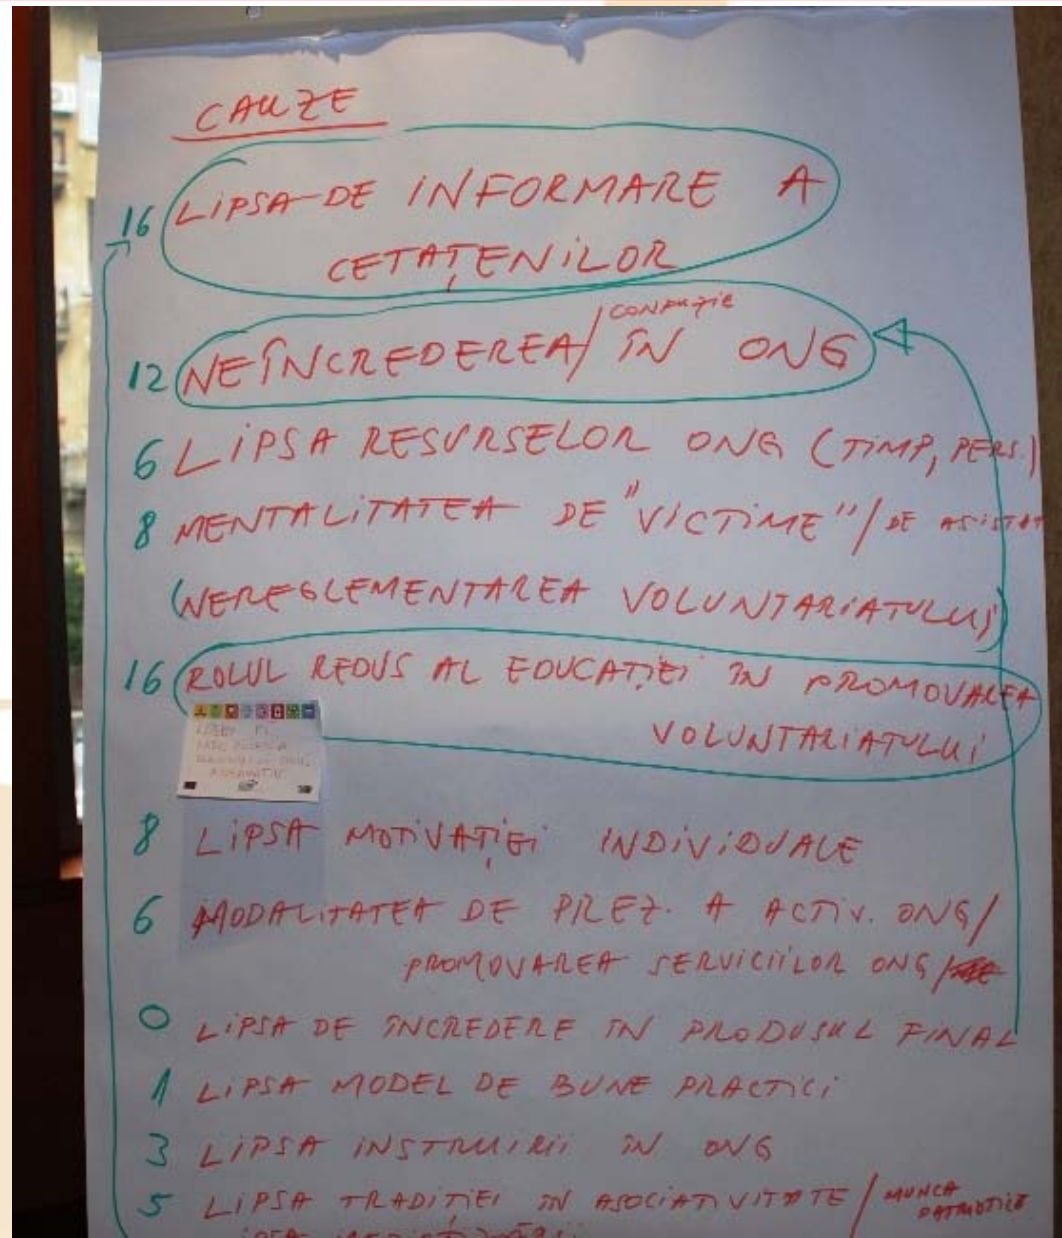 CAUZE
16 LIPSA DE INFORMARE A
CETAȚENILOR
CONFUZIE
12 NEÎNCREDEREA/ ÎN ONG
6 LIPSA RESURSELOR ONG (TIMP, PERS.)
8 MENTALITATEA DE "VICTIME"/ DE ASISTAT
(NEREGLEMENTAREA VOLUNTARIATULUI)
16 ROLUL REDUS AL EDUCAȚIEI ÎN PROMOVAREA
VOLUNTARIATULUI
8 LIPSA MOTIVAȚIEI INDIVIDUALE
6 MODALITATEA DE PREZ. A ACTIV. ONG/
PROMOVAREA SERVICIILOR ONG/
0 LIPSA DE ÎNCREDERE ÎN PRODUSUL FINAL
1 LIPSA MODEL DE BUNE PRACTICI
3 LIPSA INSTRUIRII ÎN ONG
5 LIPSA TRADIȚIEI ÎN ASOCIATIVITATE / MUNCA
PATRIOTICĂ
LIPSA